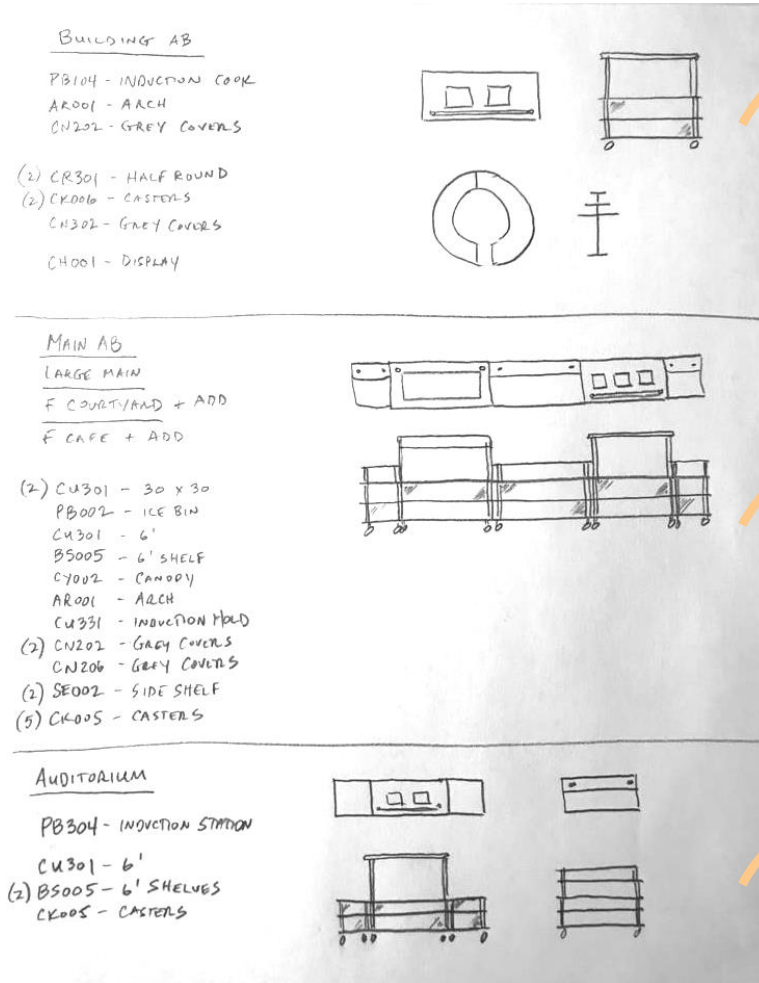 BUILDING AB
PB104 - INDUCTION COOK
AR001 - ARCH
CN202 - GREY COVERS
(2) CR301 - HALF ROUND
(2) CK006 - CASTERS
CN302 - GREY COVERS
CH001 - DISPLAY
MAIN AB
LARGE MAIN
F COURTYARD + ADD
F CAFE + ADD
(2) CU301 - 30 x 30
PB002 - ICE BIN
CU301 - 6'
BS005 - 6' SHELF
CY002 - CANOPY
AR001 - ARCH
CU331 - INDUCTION HOLD
(2) CN202 - GREY COVERS
CN206 - GREY COVERS
(2) SE002 - SIDE SHELF
(5) CK005 - CASTERS
AUDITORIUM
PB304 - INDUCTION STATION
CU301 - 6'
(2) BS005 - 6' SHELVES
CK005 - CASTERS